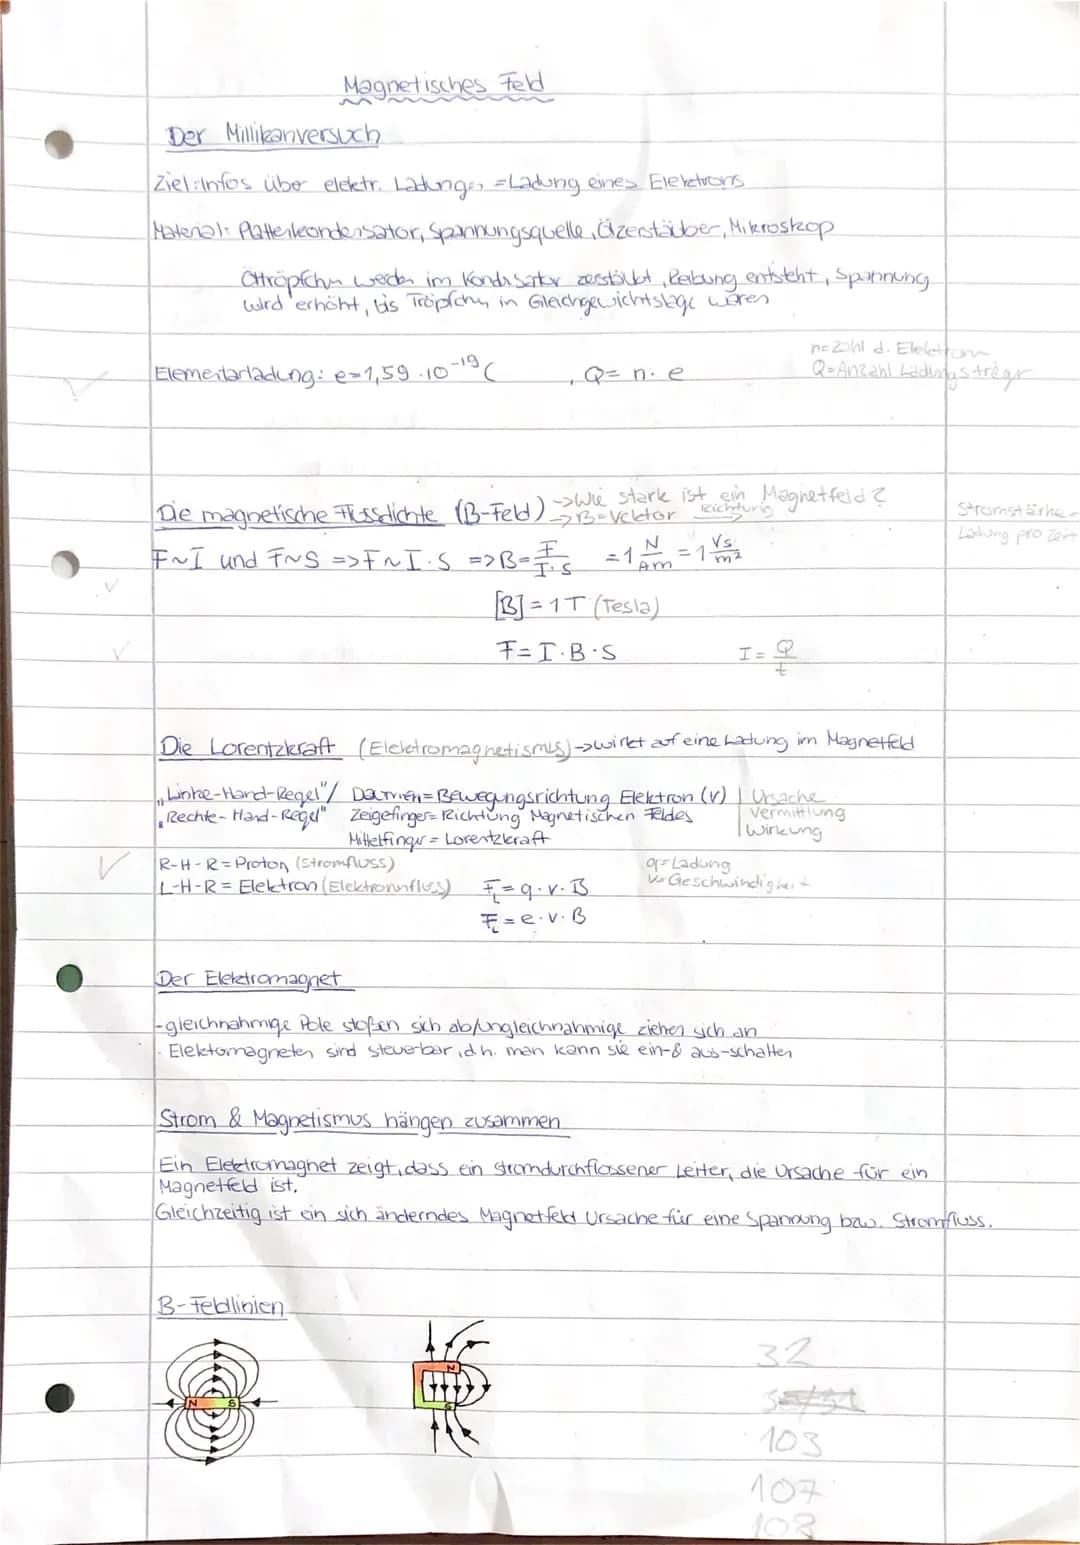 Magnetisches Feld
Der Millikanversuch
Ziel: Infos über elektr. Ladungen = Ladung eines Elektrons
Material: Plattenkondensator, Spannungsquelle, Ölzerstäuber, Mikroskop
Öltröpfchen werden im Kondensator zerstäubt, Reibung entsteht, Spannung
wird erhöht, bis Tröpfchen in Gleichgewichtslage wären
n=Zahl d. Elektronen
Elementarladung: e=1,59·10⁻¹⁹ C , Q= n·e Q=Anzahl Ladungsträger
Die magnetische Flussdichte (B-Feld) ->Wie stark ist ein Magnetfeld?
->B=Vektor Richtung
Stromstärke =
Ladung pro Zeit
F~I und F~S => F~I·S => B= F/I·s =1 N/Am = 1 Vs/m²
[B]=1T (Tesla)
F= I·B·S I= Q/t
Die Lorentzkraft (Elektromagnetismus)->wirkt auf eine Ladung im Magnetfeld
„Linke-Hand-Regel"/ Daumen=Bewegungsrichtung Elektron (v) | Ursache
„Rechte-Hand-Regel" Zeigefinger=Richtung Magnetischen Feldes | Vermittlung
Mittelfinger = Lorentzkraft | Wirkung
R-H-R=Proton (Stromfluss) q=Ladung
L-H-R= Elektron (Elektronnfluss) F_L=q·v·B v=Geschwindigkeit
F_L=e·v·B
Der Elektromagnet
-gleichnahmige Pole stoßen sich ab/ungleichnahmige ziehen sich an
- Elektomagneten sind steuerbar, d.h. man kann sie ein-& aus-schalten
Strom & Magnetismus hängen zusammen
Ein Elektromagnet zeigt, dass ein stromdurchflossener Leiter, die Ursache für ein
Magnetfeld ist.
Gleichzeitig ist ein sich änderndes Magnetfeld Ursache für eine Spannung bzw. Stromfluss.
B-Feldlinien
N S
N
S
32
103
107
108